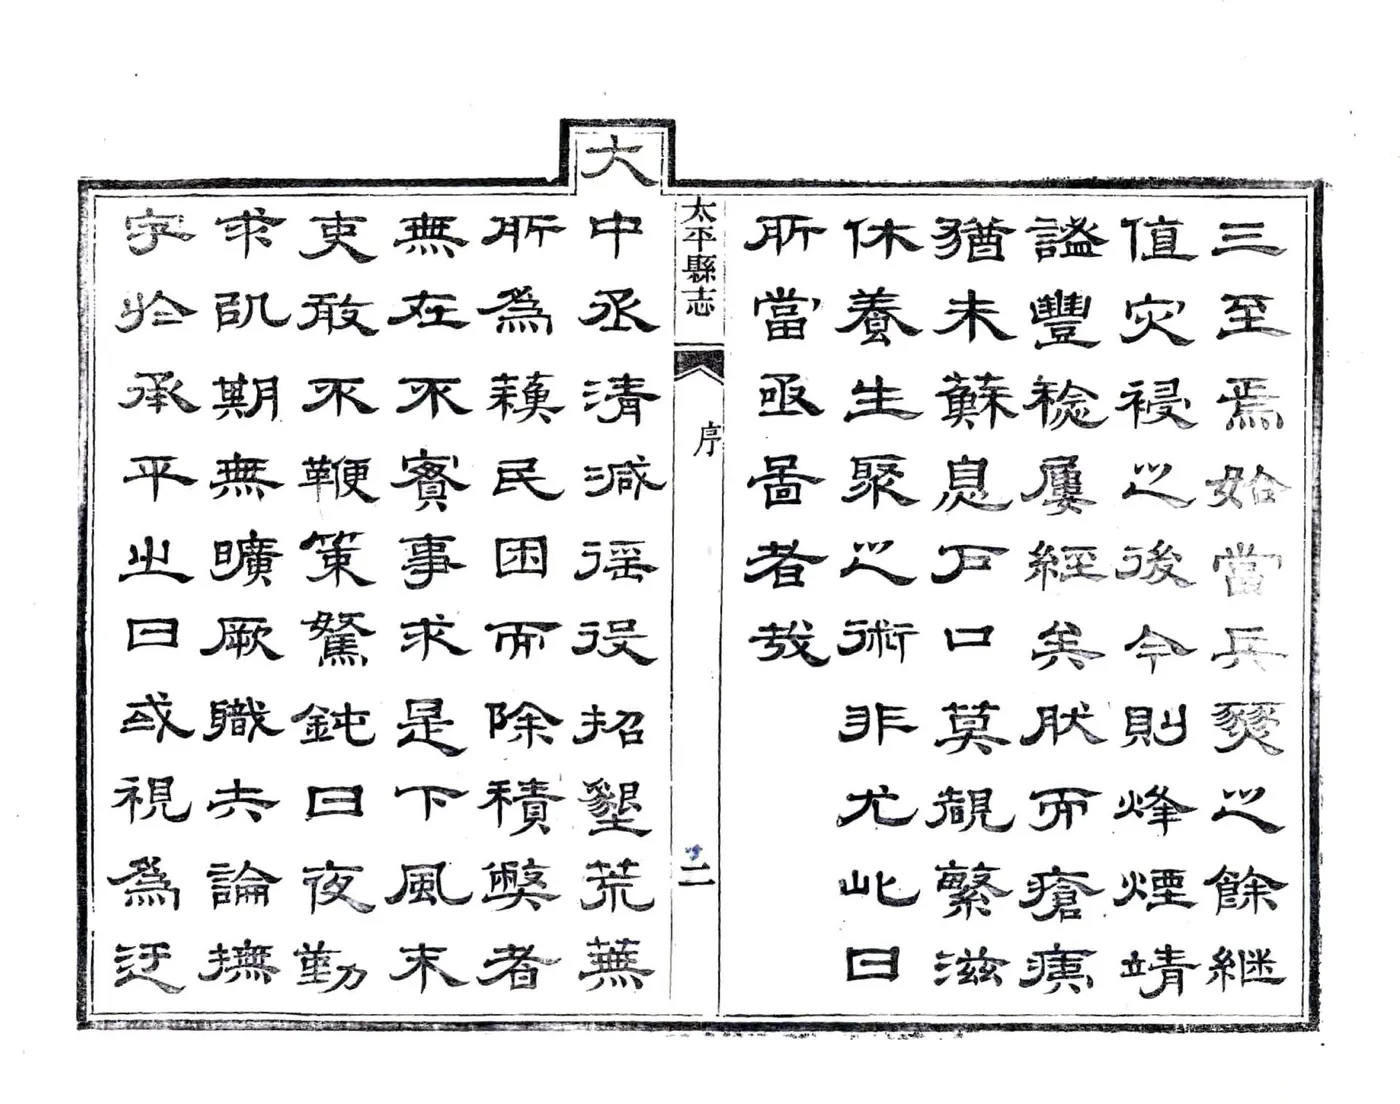 三至焉始當兵燹之餘継
值灾祲之後今則烽煙靖
謐豐稔屢經矣肰而瘡痍
猶未蘇息户口莫覩繁滋
休養生聚之術非尤此日
所當亟啚者哉
太平縣志
序
二
大
中丞清減徭役招墾荒蕪
所為蘓民困而除積弊者
無在不實事求是下風末
吏敢不鞭策駑鈍日夜勤
求期無曠厥職夫論撫
字於承平之日或視為迂